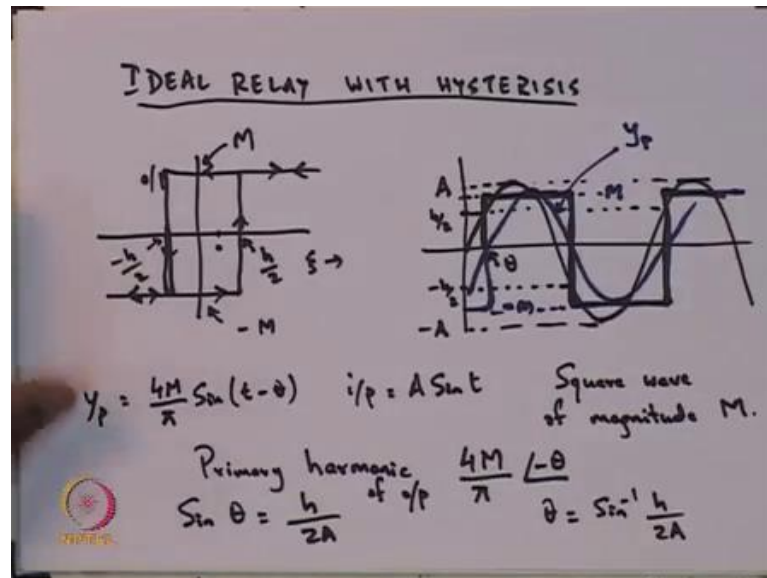 IDEAL RELAY WITH HYSTERISIS
M
o/p
-h/2
h/2
ξ →
-M
y_p
A
M
h/2
θ
-h/2
-M
-A
y_p = 4M/π Sin(t-θ) i/p = A Sin t Square wave
of magnitude M.
Primary harmonic of o/p 4M/π ∠-θ
Sin θ = h/2A θ = Sin⁻¹ h/2A
NPTEL